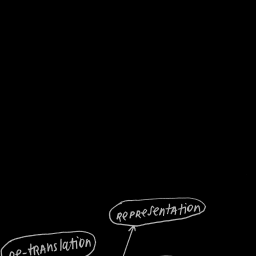 RepResentation
Re-tRAnslation